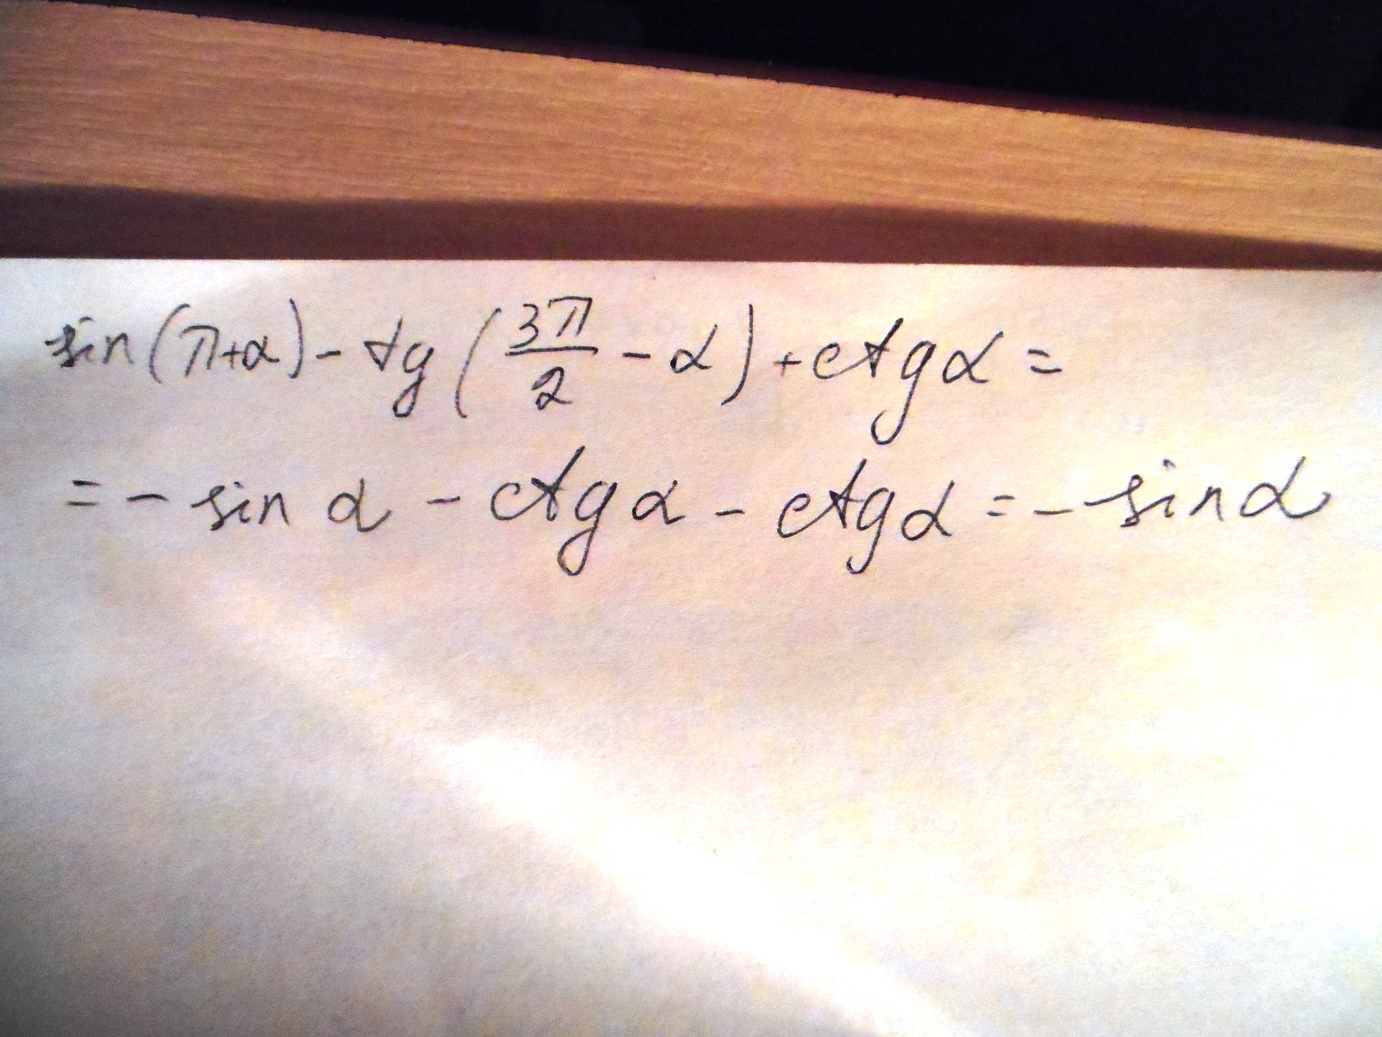 sin(π+α) - tg(3π/2 - α) + ctgα =
= - sin α - ctg α - ctg α = - sin α